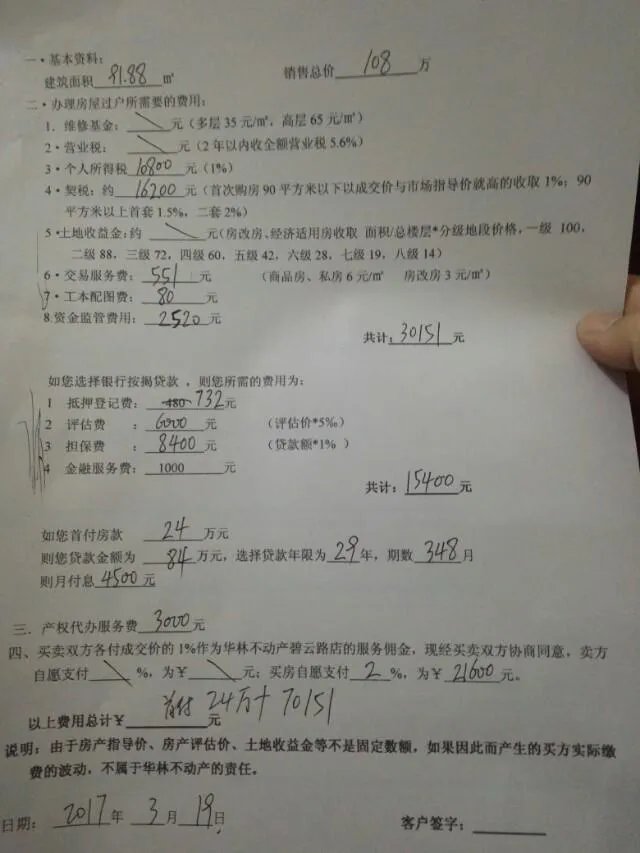 一·基本资料：
建筑面积 91.88 ㎡ 销售总价 108 万
二·办理房屋过户所需要的费用：
1. 维修基金：\ 元（多层 35 元/㎡，高层 65 元/㎡）
2·营业税：\ 元（2 年以内收全额营业税 5.6%）
3·个人所得税 10800 元（1%）
4·契税：约 16200 元（首次购房 90 平方米以下以成交价与市场指导价就高的收取 1%；90
平方米以上首套 1.5%，二套 2%）
5·土地收益金：约 \ 元（房改房、经济适用房收取 面积/总楼层*分级地段价格，一级 100，
二级 88，三级 72，四级 60，五级 42，六级 28，七级 19，八级 14）
6·交易服务费：551 元 （商品房、私房 6 元/㎡ 房改房 3 元/㎡）
7·工本配图费：80 元
8.资金监管费用：2520 元
共计：30151 元
如您选择银行按揭贷款 ，则您所需的费用为：
1 抵押登记费：480 732 元
2 评估费 ：6000 元 （评估价*5‰）
3 担保费 ：8400 元 （贷款额*1% ）
4 金融服务费：1000 元
共计：15400 元
如您首付房款 24 万元
则您贷款金额为 84 万元，选择贷款年限为 29 年，期数 348 月
则月付息 4500 元
三．产权代办服务费 3000 元
四、买卖双方各付成交价的 1%作为华林不动产碧云路店的服务佣金，现经买卖双方协商同意，卖方
自愿支付 \ %，为￥ \ 元；买房自愿支付 2 %，为￥ 21600 元。
首付 24万+70151
以上费用总计￥ 元
说明：由于房产指导价、房产评估价、土地收益金等不是固定数额，如果因此而产生的买方实际缴
费的波动，不属于华林不动产的责任。
日期： 2017 年 3 月 19 日 客户签字：